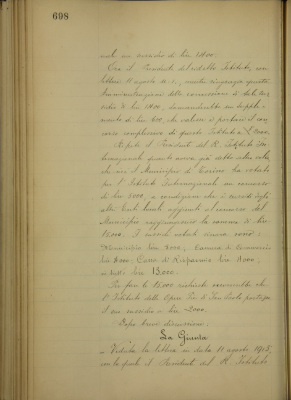 698
un sussidio di lire 1400.
Ora il Presidente del detto Istituto, con
lettera 11 agosto u. s., mentre ringrazia questa
Amministrazione della concessione di detto sus-
sidio di lire 1400, domanda un supple-
mento di lire 600, che valesse a portare il con
corso complessivo di questo Istituto a L. 2000.
Ripete il Presidente del R. Istituto
quanto aveva già detto altra volta,
che cioè il Municipio di Torino ha votato
per l'Istituto un concorso
di lire 5000, a condizione che i concorsi degli
altri Enti locali aggiunti al concorso del
Municipio raggiungessero la somma di lire
15.000. I concorsi votati sinora sono:
Municipio lire 5000, Camera di Commercio
lire Cassa di Risparmio lire
in tutto lire 13.000.
Per fare le 15.000 richieste occorrerebbe che
l'Istituto delle Opere Pie di San Paolo portasse
il suo sussidio a lire 2000.
Dopo breve discussione;
La Giunta
Veduta la lettera in data 11 agosto 1905,
con la quale il Presidente del R. Istituto